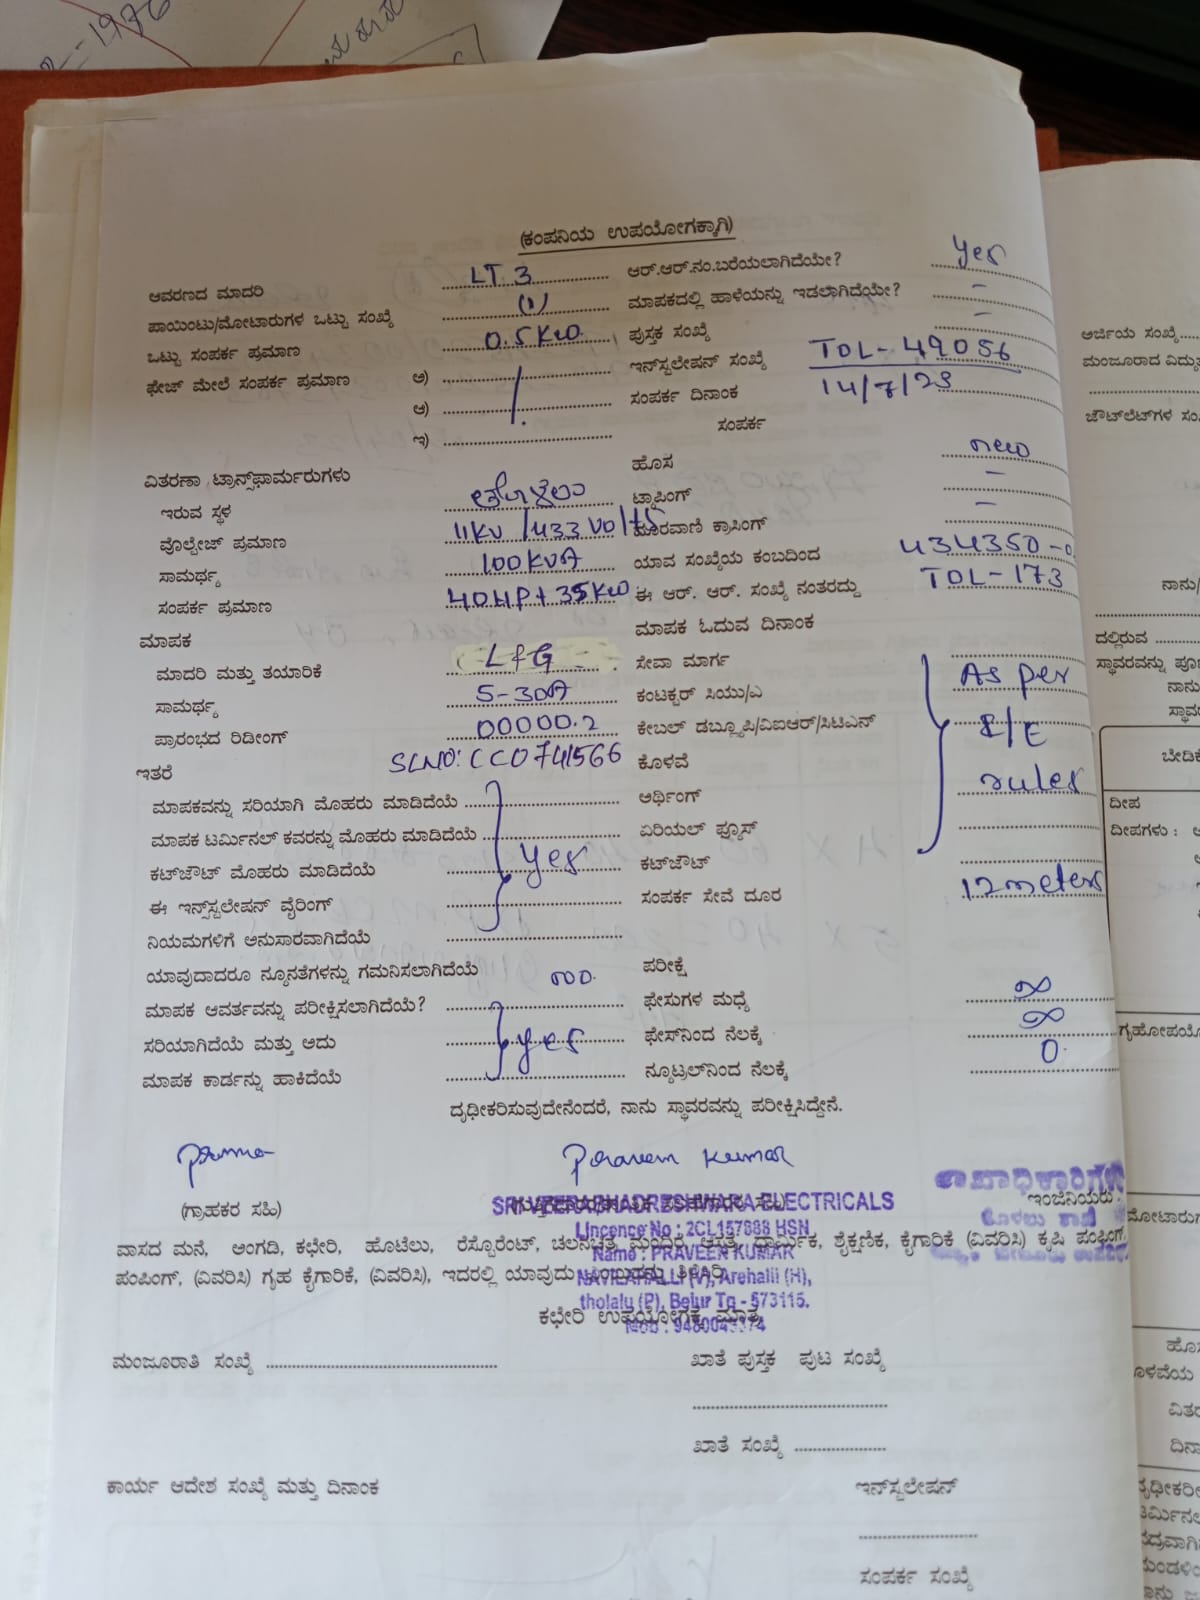 (ಕಂಪನಿಯ ಉಪಯೋಗಕ್ಕಾಗಿ)
ಆವರಣದ ಮಾದರಿ LT 3 ಆರ್.ಆರ್.ನಂ.ಬರೆಯಲಾಗಿದೆಯೇ? yes
ಪಾಯಿಂಟು/ಮೋಟಾರುಗಳ ಒಟ್ಟು ಸಂಖ್ಯೆ (1) ಮಾಪಕದಲ್ಲಿ ಹಾಳೆಯನ್ನು ಇಡಲಾಗಿದೆಯೇ? -
ಒಟ್ಟು ಸಂಪರ್ಕ ಪ್ರಮಾಣ 0.5 KW ಪುಸ್ತಕ ಸಂಖ್ಯೆ -
ಫೇಜ್ ಮೇಲೆ ಸಂಪರ್ಕ ಪ್ರಮಾಣ ಅ) ಇನ್‌ಸ್ಟಲೇಷನ್ ಸಂಖ್ಯೆ TDL-49056
ಆ) ಸಂಪರ್ಕ ದಿನಾಂಕ 14/7/23
ಇ) ಸಂಪರ್ಕ
ವಿತರಣಾ ಟ್ರಾನ್ಸ್‌ಫಾರ್ಮರುಗಳು ಹೊಸ new
ಇರುವ ಸ್ಥಳ ಟ್ಯಾಪಿಂಗ್ -
ವೊಲ್ಟೇಜ್ ಪ್ರಮಾಣ 11KV/433 Volts ದೂರವಾಣಿ ಕ್ರಾಸಿಂಗ್ -
ಸಾಮರ್ಥ್ಯ 100 KVA ಯಾವ ಸಂಖ್ಯೆಯ ಕಂಬದಿಂದ 434350-0
ಸಂಪರ್ಕ ಪ್ರಮಾಣ 40HP+35KW ಈ ಆರ್. ಆರ್. ಸಂಖ್ಯೆ ನಂತರದ್ದು TDL-173
ಮಾಪಕ ಮಾಪಕ ಓದುವ ದಿನಾಂಕ
ಮಾದರಿ ಮತ್ತು ತಯಾರಿಕೆ L&G ಸೇವಾ ಮಾರ್ಗ
ಸಾಮರ್ಥ್ಯ 5-30A ಕಂಟಕ್ಟರ್ ಸಿಯು/ಎ As per
ಪ್ರಾರಂಭದ ರಿಡೀಂಗ್ 00000.2 ಕೇಬಲ್ ಡಬ್ಲ್ಯೂಪಿ/ವಿಐಆರ್/ಸಿಟಿಎಸ್ I/E
ಇತರೆ SLNO: CC0741566 ಕೊಳವೆ
ಮಾಪಕವನ್ನು ಸರಿಯಾಗಿ ಮೊಹರು ಮಾಡಿದೆಯೆ ಅರ್ಥಿಂಗ್ rules
ಮಾಪಕ ಟರ್ಮಿನಲ್ ಕವರನ್ನು ಮೊಹರು ಮಾಡಿದೆಯೆ ಏರಿಯಲ್ ಫ್ಯೂಸ್
ಕಟ್‌ಔಟ್ ಮೊಹರು ಮಾಡಿದೆಯೆ yes ಕಟ್‌ಔಟ್
ಈ ಇನ್ಸ್‌ಸ್ಟಲೇಷನ್ ವೈರಿಂಗ್ ಸಂಪರ್ಕ ಸೇವೆ ದೂರ 12 meters
ನಿಯಮಗಳಿಗೆ ಅನುಸಾರವಾಗಿದೆಯೆ
ಯಾವುದಾದರೂ ನ್ಯೂನತೆಗಳನ್ನು ಗಮನಿಸಲಾಗಿದೆಯೆ no. ಪರೀಕ್ಷೆ
ಮಾಪಕ ಆವರ್ತವನ್ನು ಪರೀಕ್ಷಿಸಲಾಗಿದೆಯೆ? ಫೇಸುಗಳ ಮಧ್ಯೆ ∞
ಸರಿಯಾಗಿದೆಯೆ ಮತ್ತು ಅದು yes ಫೇಸ್‌ನಿಂದ ನೆಲಕ್ಕೆ ∞
ಮಾಪಕ ಕಾರ್ಡನ್ನು ಹಾಕಿದೆಯೆ ನ್ಯೂಟ್ರಲ್‌ನಿಂದ ನೆಲಕ್ಕೆ 0.
ದೃಢೀಕರಿಸುವುದೇನೆಂದರೆ, ನಾನು ಸ್ಥಾವರವನ್ನು ಪರೀಕ್ಷಿಸಿದ್ದೇನೆ.
Praveen Kumar
(ಗ್ರಾಹಕರ ಸಹಿ) ಇಂಜಿನಿಯರು.
SRI VEERABHADRESHWARA ELECTRICALS
Lincence No : 2CL157888 HSN
Name : PRAVEEN KUMAR
NAVILAHALLI (V), Arehalli (H),
tholalu (P), Belur Tq - 573115.
ವಾಸದ ಮನೆ, ಅಂಗಡಿ, ಕಛೇರಿ, ಹೊಟೆಲು, ರೆಸ್ಟೊರೆಂಟ್, ಚಲನಚಿತ್ರ ಮಂದಿರ, ಆಸ್ಪತ್ರೆ, ಧಾರ್ಮಿಕ, ಶೈಕ್ಷಣಿಕ, ಕೈಗಾರಿಕೆ (ವಿವರಿಸಿ) ಕೃಷಿ ಪಂಪಿಂಗ್,
ಪಂಪಿಂಗ್, (ವಿವರಿಸಿ) ಗೃಹ ಕೈಗಾರಿಕೆ, (ವಿವರಿಸಿ), ಇದರಲ್ಲಿ ಯಾವುದು
ಕಛೇರಿ ಉಪಯೋಗಕ್ಕೆ ಮಾತ್ರ
ಮಂಜೂರಾತಿ ಸಂಖ್ಯೆ ಖಾತೆ ಪುಸ್ತಕ ಪುಟ ಸಂಖ್ಯೆ
ಖಾತೆ ಸಂಖ್ಯೆ
ಕಾರ್ಯ ಆದೇಶ ಸಂಖ್ಯೆ ಮತ್ತು ದಿನಾಂಕ ಇನ್‌ಸ್ಟಲೇಷನ್
ಸಂಪರ್ಕ ಸಂಖ್ಯೆ
ಅರ್ಜಿಯ ಸಂಖ್ಯೆ
ಮಂಜೂರಾದ
ನಾನು/
ದಲ್ಲಿರುವ
ದೀಪ
ದೀಪಗಳು :